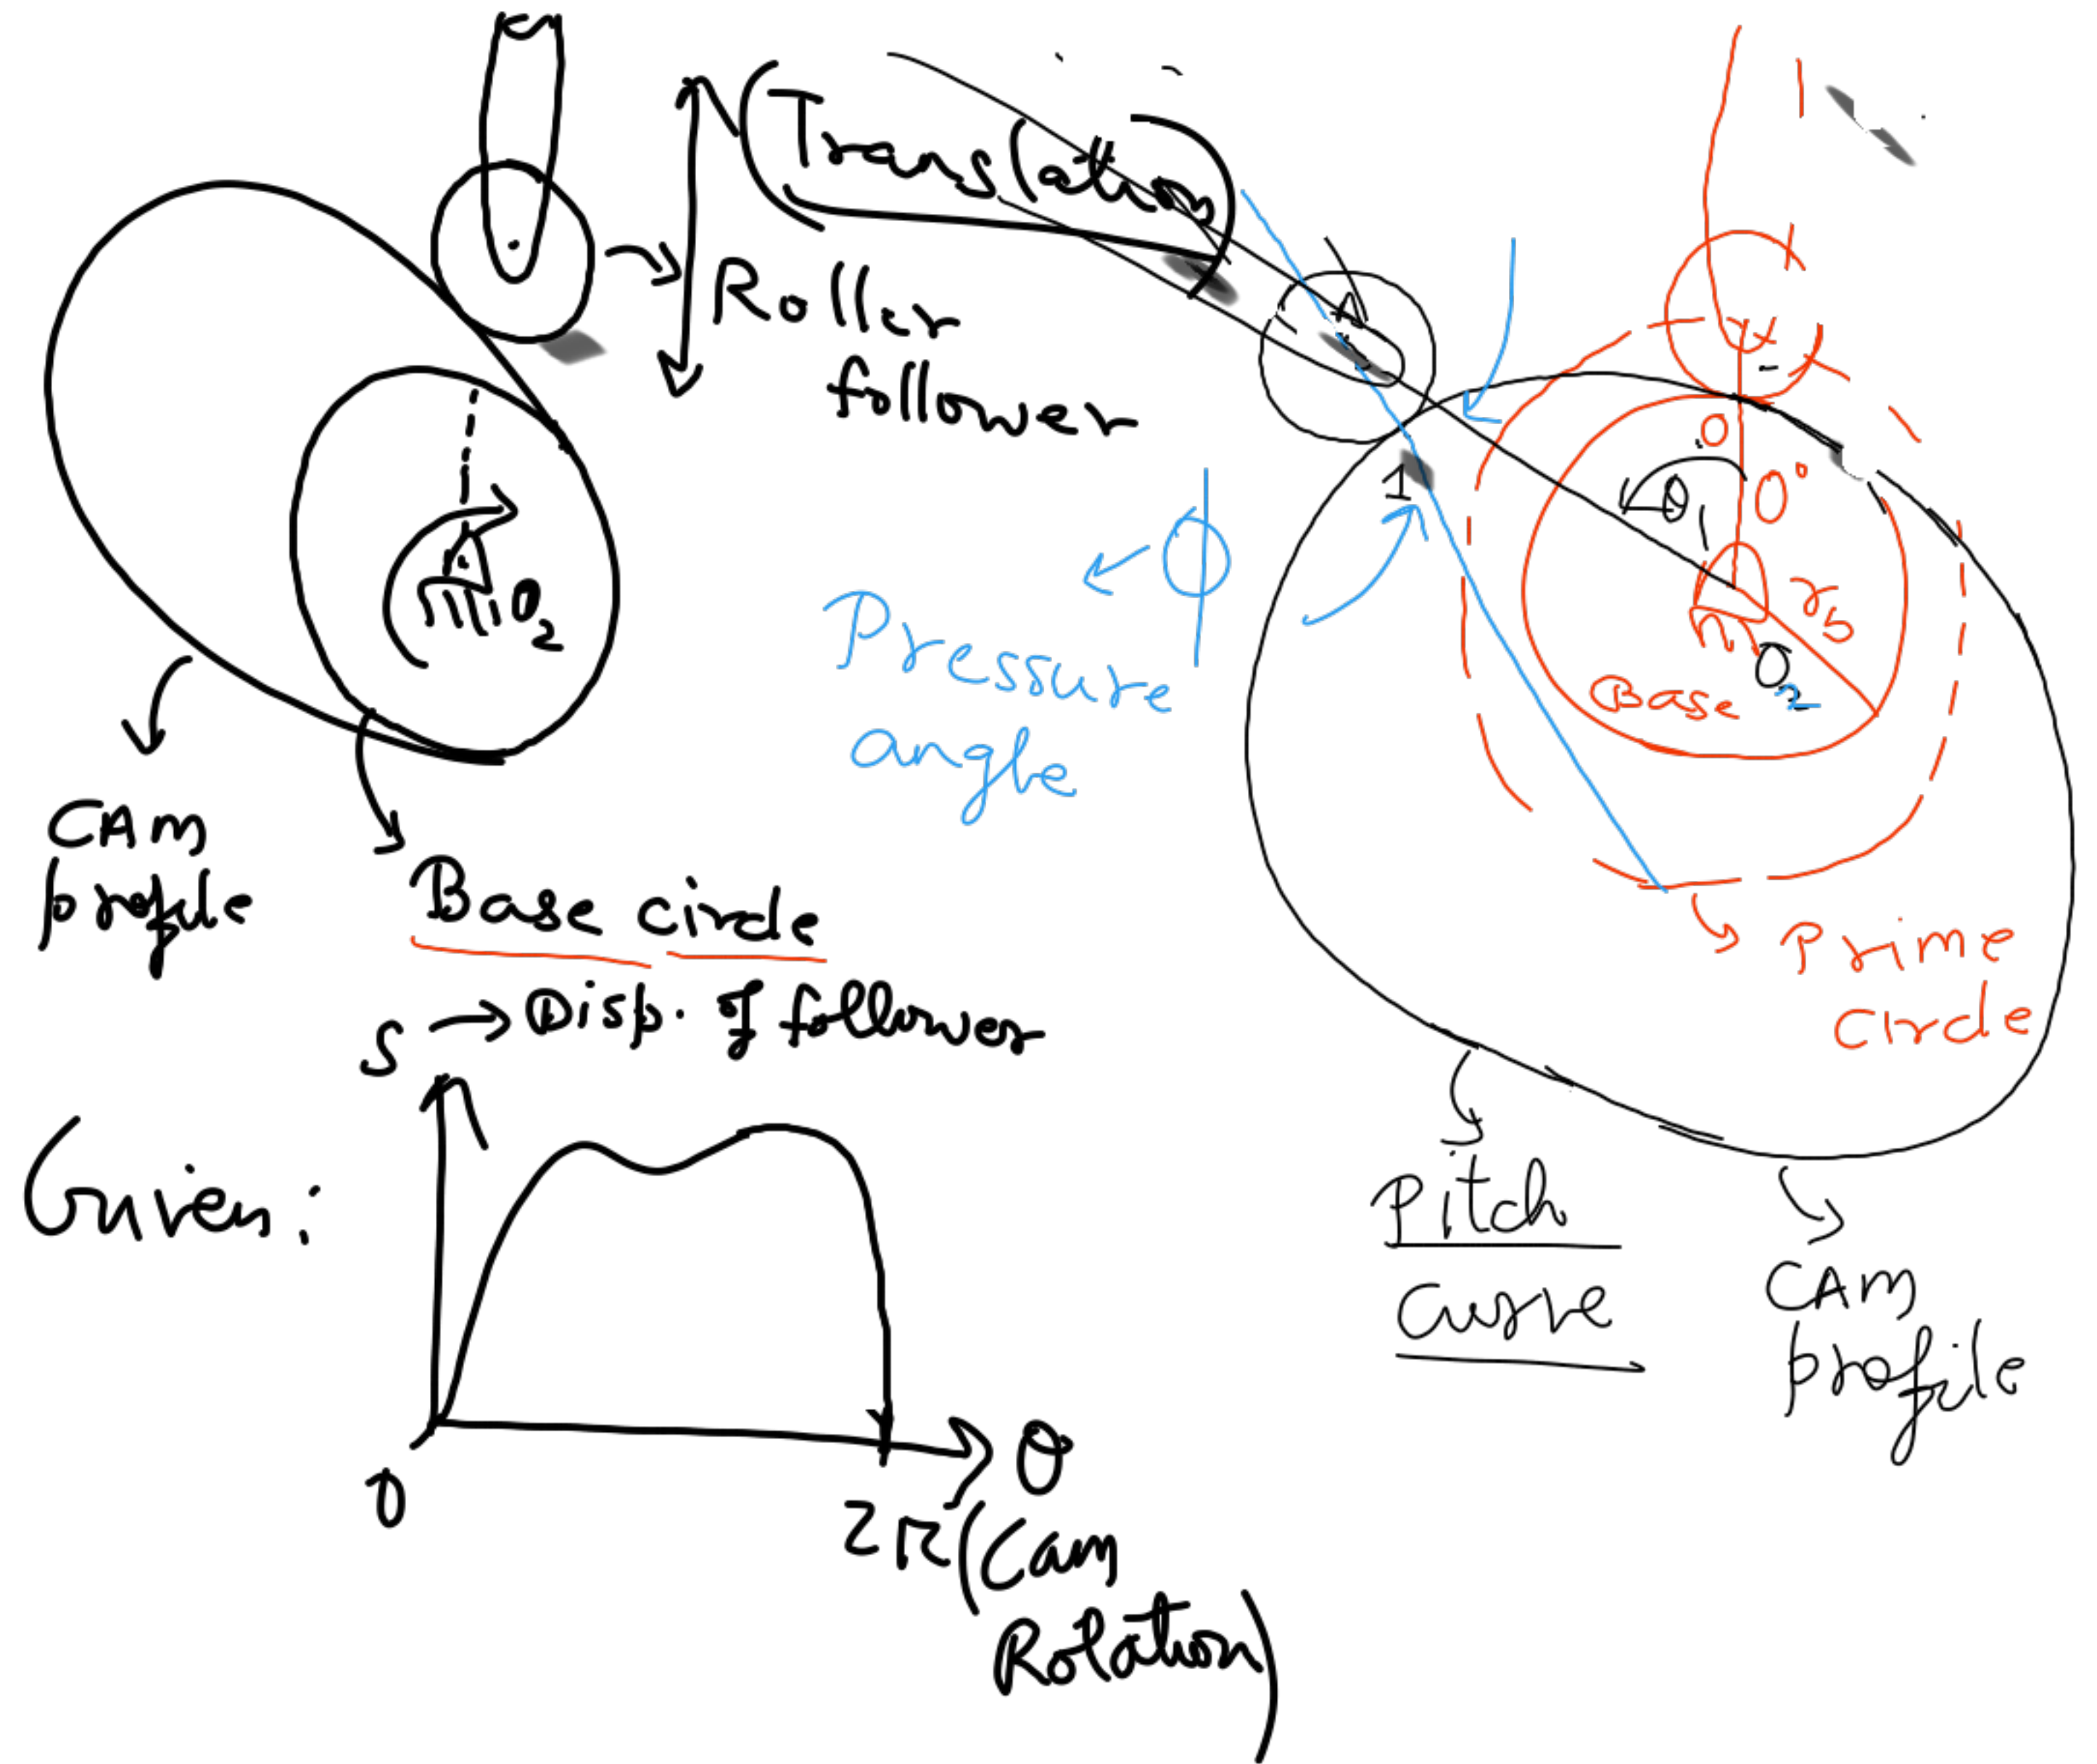 (Translation)
Roller
follower
O₂
CAM
profile
Base circle
S → Disp. of follower
Given:
0
2π
θ
(Cam
Rotation)
A
1
0
0°
θ₁
r_b
O₂
Base
ϕ
Pressure
angle
Prime
circle
Pitch
Curve
CAM
profile